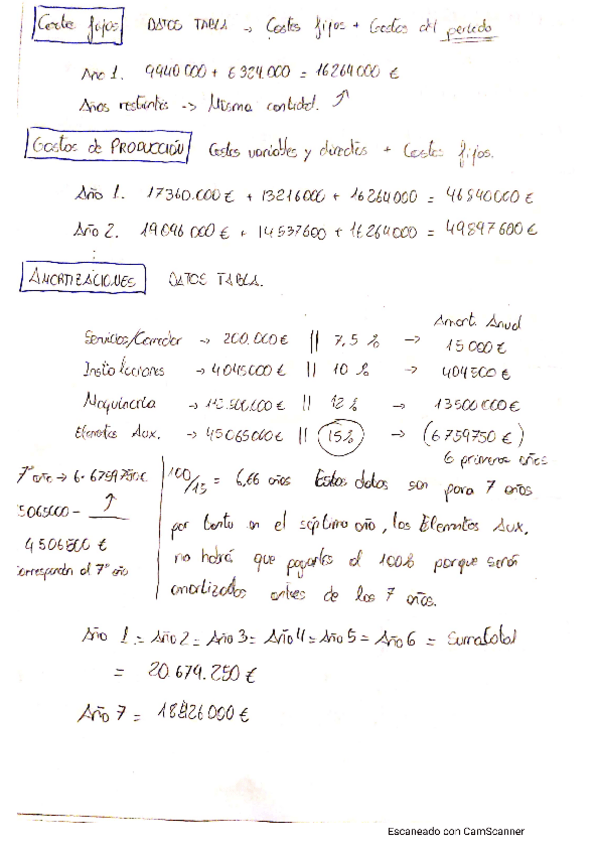 Costes fijos DATOS TABLA → Costes fijos + Gastos del periodo
Año 1. 9940000 + 6324000 = 16264000 €
Años restantes → Misma cantidad. ↑
Gastos de PRODUCCIÓN Costes variables y directos + Costes fijos.
Año 1. 17360.000€ + 13216000 + 16264000 = 46840000 €
Año 2. 19096000€ + 14537600 + 16264000 = 49897600 €
AMORTIZACIONES DATOS TABLA.
Amort. Anual
Servicios/Comedor → 200.000€ || 7,5 % → 15000€
Instalaciones → 4045000 € || 10 % → 404500 €
Maquinaria → 112.500.000€ || 12% → 13500000€
Elementos Aux. → 45065000€ || 15% → (6759750€)
6 primeros años
7º año → 6·6759750€
5065000 -
4506500 €
corresponden al 7º año
100/15 = 6,66 años Estos datos son para 7 años
por tanto en el séptimo año, los Elementos Aux.
no habrá que pagarlos al 100% porque serán
amortizados antes de los 7 años.
Año 1 = Año 2 = Año 3 = Año 4 = Año 5 = Año 6 = Suma total
= 20.679.250 €
Año 7 = 18426000 €
Escaneado con CamScanner